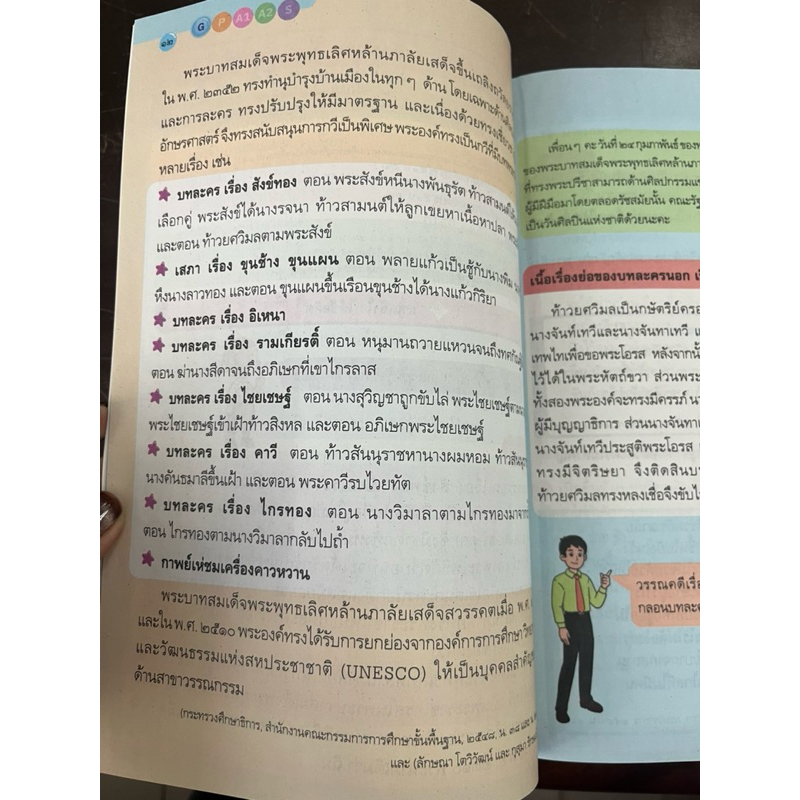 ๑๒
G P A1 A2 S
พระบาทสมเด็จพระพุทธเลิศหล้านภาลัยเสด็จขึ้นเถลิงถวัล
ใน พ.ศ. ๒๓๕๒ ทรงทำนุบำรุงบ้านเมืองในทุก ๆ ด้าน โดยเฉพาะด้าน
และการละคร ทรงปรับปรุงให้มีมาตรฐาน และเนื่องด้วยทรงเชี่ยว
อักษรศาสตร์ จึงทรงสนับสนุนการกวีเป็นพิเศษ พระองค์ทรงเป็นกวีที่มี
หลายเรื่อง เช่น
บทละคร เรื่อง สังข์ทอง ตอน พระสังข์หนีนางพันธุรัต ท้าวสามนต์ให้
เลือกคู่ พระสังข์ได้นางรจนา ท้าวสามนต์ให้ลูกเขยหาเนื้อหาปลา
และตอน ท้าวยศวิมลตามพระสังข์
เสภา เรื่อง ขุนช้าง ขุนแผน ตอน พลายแก้วเป็นชู้กับนางพิม
หึงนางลาวทอง และตอน ขุนแผนขึ้นเรือนขุนช้างได้นางแก้วกิริยา
บทละคร เรื่อง อิเหนา
บทละคร เรื่อง รามเกียรติ์ ตอน หนุมานถวายแหวนจนถึงทศกัณฐ์
ตอน ฆ่านางสีดาจนถึงอภิเษกที่เขาไกรลาส
บทละคร เรื่อง ไชยเชษฐ์ ตอน นางสุวิญชาถูกขับไล่ พระไชยเชษฐ์ตาม
พระไชยเชษฐ์เข้าเฝ้าท้าวสิงหล และตอน อภิเษกพระไชยเชษฐ์
บทละคร เรื่อง คาวี ตอน ท้าวสันนุราชหานางผมหอม ท้าวสันนุ
นางคันธมาลีขึ้นเฝ้า และตอน พระคาวีรบไวยทัต
บทละคร เรื่อง ไกรทอง ตอน นางวิมาลาตามไกรทองมาจาก
ตอน ไกรทองตามนางวิมาลากลับไปถ้ำ
กาพย์เห่ชมเครื่องคาวหวาน
พระบาทสมเด็จพระพุทธเลิศหล้านภาลัยเสด็จสวรรคตเมื่อ พ.ศ.
และใน พ.ศ. ๒๕๑๐ พระองค์ทรงได้รับการยกย่องจากองค์การการศึกษา วิทยา
และวัฒนธรรมแห่งสหประชาชาติ (UNESCO) ให้เป็นบุคคลสำคัญ
ด้านสาขาวรรณกรรม
(กระทรวงศึกษาธิการ, สำนักงานคณะกรรมการการศึกษาขั้นพื้นฐาน, ๒๕๔๘, น. ๓๘ และ
และ (ลักษณา โตวิวัฒน์ และ กุสุมา รักษ
เพื่อน ๆ คะ วันที่ ๒๔ กุมภาพันธ์ ของ
ของพระบาทสมเด็จพระพุทธเลิศหล้านภา
ที่ทรงพระปรีชาสามารถด้านศิลปกรรม
ผู้มีฝีมือมาโดยตลอดรัชสมัยนั้น คณะรัฐ
เป็นวันศิลปินแห่งชาติด้วยนะคะ
เนื้อเรื่องย่อของบทละครนอก เ
ท้าวยศวิมลเป็นกษัตริย์ครอ
นางจันท์เทวีและนางจันทาเทวี แ
เทพไทเพื่อขอพระโอรส หลังจากนั้
ไว้ได้ในพระหัตถ์ขวา ส่วนพระ
ทั้งสองพระองค์จะทรงมีครรภ์ น
ผู้มีบุญญาธิการ ส่วนนางจันทา
นางจันท์เทวีประสูติพระโอรส
ทรงมีจิตริษยา จึงติดสินบ
ท้าวยศวิมลทรงหลงเชื่อจึงขับไ
วรรณคดีเรื่
กลอนบทละค